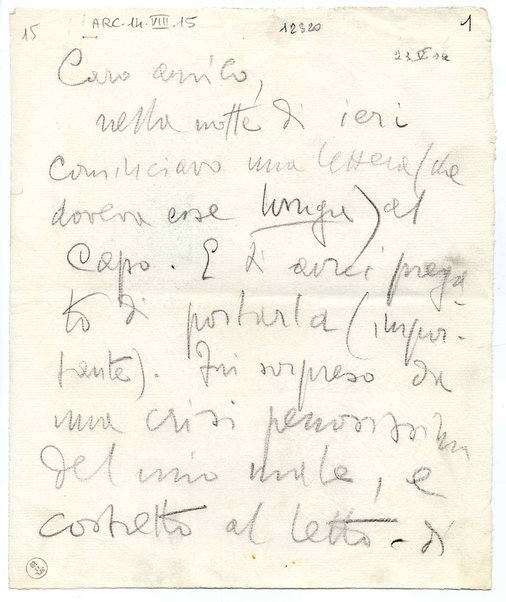 15
ARC.14.VIII.15
12320
1
Caro amico,
nella notte di ieri
cominciavo una lettera (che
doveva esse lunga) al
Capo. E ti avrei prega
to di portarla (impor-
tante). Fui sorpreso da
una crisi penosissima
del mio male, e
costretto al letto - di